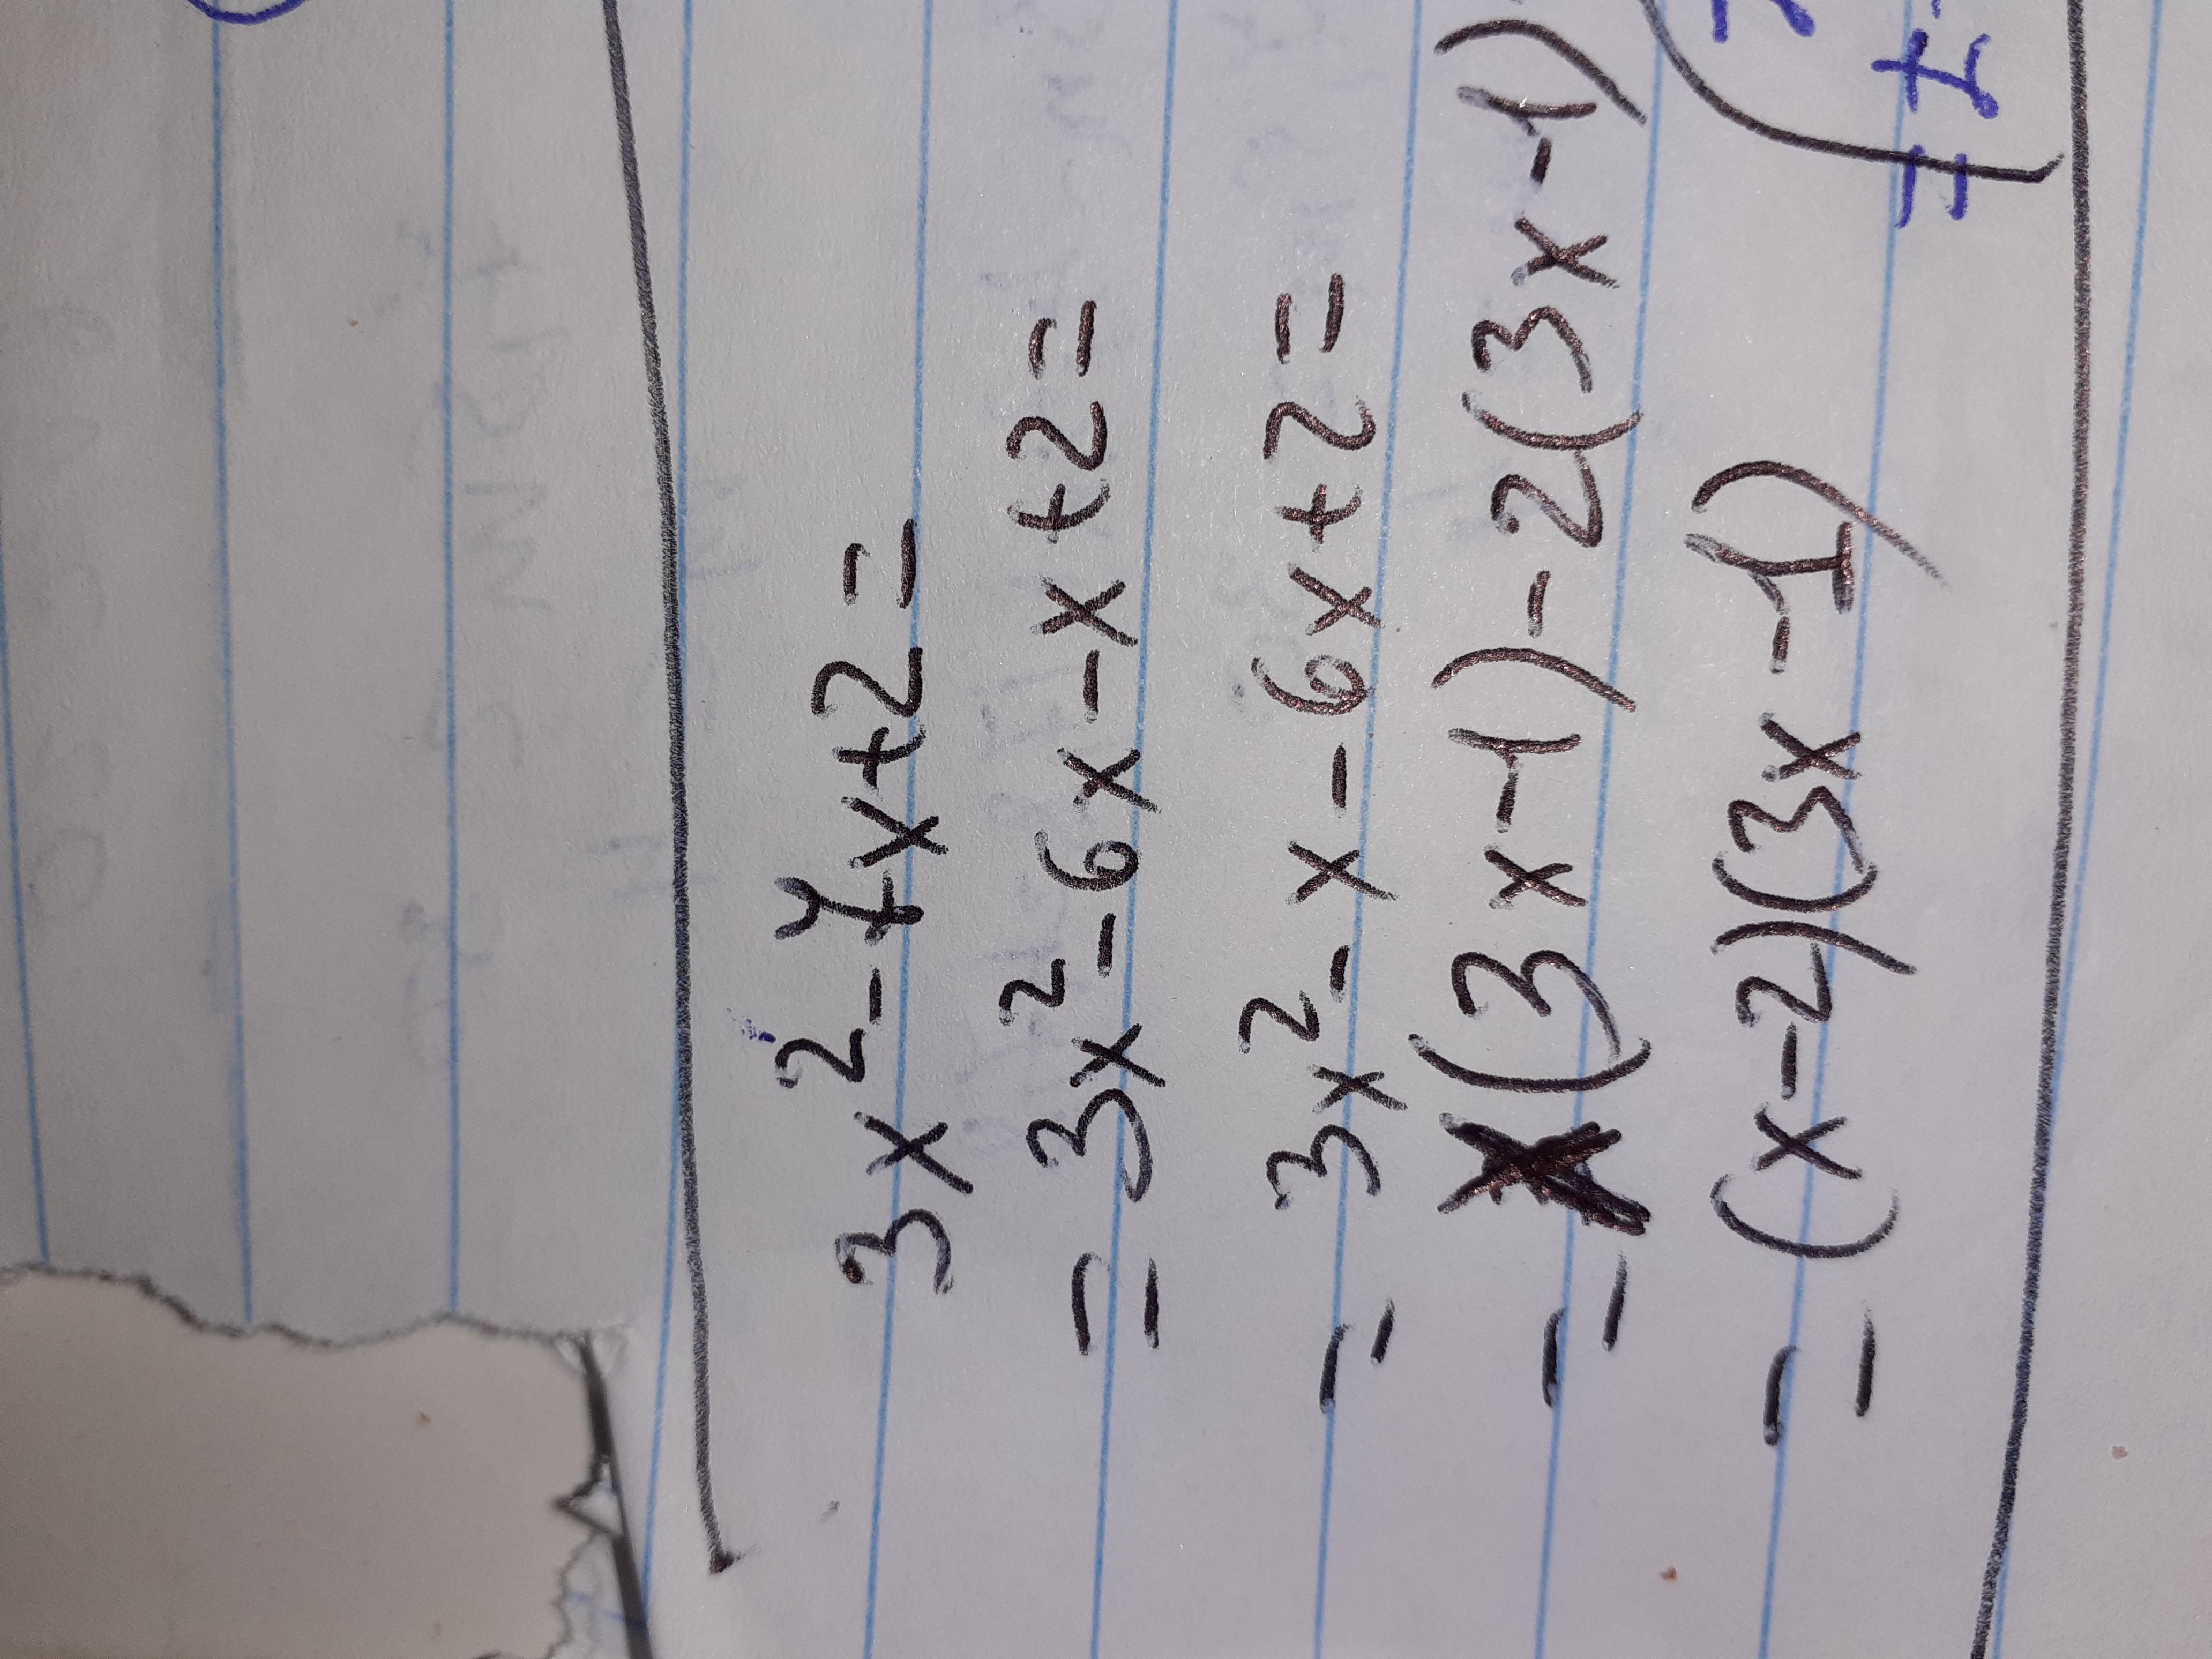 3x² - 7x + 2 =
= 3x² - 6x - x + 2 =
= 3x² - x - 6x + 2 =
= x(3x - 1) - 2(3x - 1)
= (x - 2)(3x - 1)